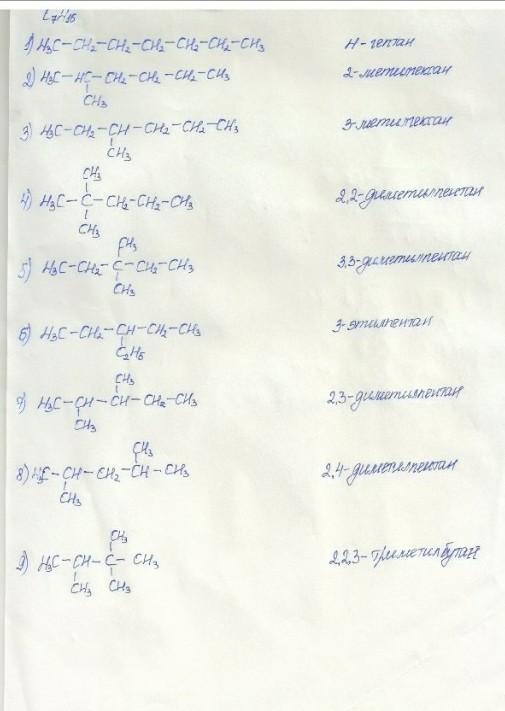 C7H16
1) H3C-CH2-CH2-CH2-CH2-CH2-CH3 Н-гептан
2) H3C-HC-CH2-CH2-CH2-CH3 2-метилгексан
CH3
3) H3C-CH2-CH-CH2-CH2-CH3 3-метилгексан
CH3
CH3
4) H3C-C-CH2-CH2-CH3 2,2-диметилпентан
CH3
CH3
5) H3C-CH2-C-CH2-CH3 3,3-диметилпентан
CH3
6) H3C-CH2-CH-CH2-CH3 3-этилпентан
C2H5
CH3
7) H3C-CH-CH-CH2-CH3 2,3-диметилпентан
CH3
CH3
8) H3C-CH-CH2-CH-CH3 2,4-диметилпентан
CH3
CH3
9) H3C-CH-C-CH3 2,2,3-триметилбутан
CH3 CH3